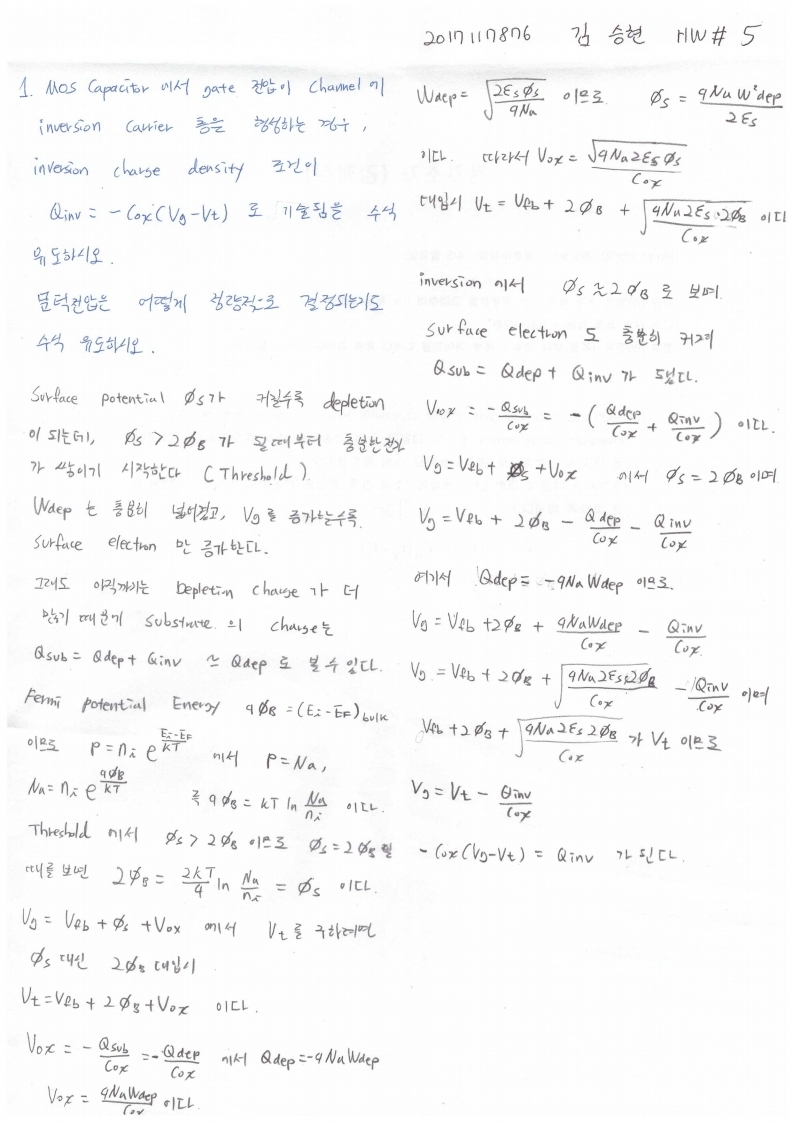 2017117876 김 승현 HW# 5
1. MOS Capacitor 에서 gate 전압이 Channel 에
inversion carrier 층을 형성하는 경우,
inversion charge density 조건이
Qinv = -Cox(Vg-Vt) 로 기술됨을 수식
유도하시오.
문턱전압은 어떻게 정량적으로 결정되는지도
수식 유도하시오.
Surface potential ∅s가 커질수록 depletion
이 되는데, ∅s > 2∅B 가 될때부터 충분한 전자
가 쌓이기 시작한다 (Threshold)
Wdep 는 충분히 넓어졌고, Vg를 증가하는수록
Surface electron 만 증가한다.
그래도 아직까지는 Depletion Charge 가 더
많기 때문에 Substrate 의 charge는
Qsub = Qdep + Qinv ≃ Qdep 로 볼 수 있다.
Fermi potential Energy q∅B = (Ei-EF)bulk
이므로 P = ni e^((Ei-EF)/kT) 에서 P = Na,
Na = ni e^(q∅B/kT) 즉 q∅B = kT ln Na/ni 이다.
Threshold 에서 ∅s > 2∅B 이므로 ∅s = 2∅B 일
때를 보면 2∅B = 2kT/q ln Na/ni = ∅s 이다.
Vg = Vfb + ∅s + Vox 에서 Vt를 구하려면
∅s 대신 2∅B 대입시
Vt = Vfb + 2∅B + Vox 이다.
Vox = - Qsub/Cox = - Qdep/Cox 에서 Qdep = -qNaWdep
Vox = qNaWdep/Cox 이다.
Wdep = √(2εs∅s/qNa) 이므로 ∅s = qNaW²dep/2εs
이다. 따라서 Vox = √(qNa2εs∅s)/Cox
대입시 Vt = Vfb + 2∅B + √(qNa2εs·2∅B)/Cox 이다
inversion 에서 ∅s ≃ 2∅B 로 보며
Surface electron 도 충분히 커져
Qsub = Qdep + Qinv 가 된다.
Vox = - Qsub/Cox = - (Qdep/Cox + Qinv/Cox) 이다.
Vg = Vfb + ∅s + Vox 에서 ∅s = 2∅B 이며
Vg = Vfb + 2∅B - Qdep/Cox - Qinv/Cox
여기서 Qdep = -qNaWdep 이므로
Vg = Vfb + 2∅B + qNaWdep/Cox - Qinv/Cox
Vg = Vfb + 2∅B + √(qNa2εs2∅B)/Cox - Qinv/Cox 이며
Vfb + 2∅B + √(qNa2εs2∅B)/Cox 가 Vt 이므로
Vg = Vt - Qinv/Cox
-Cox(Vg-Vt) = Qinv 가 된다.